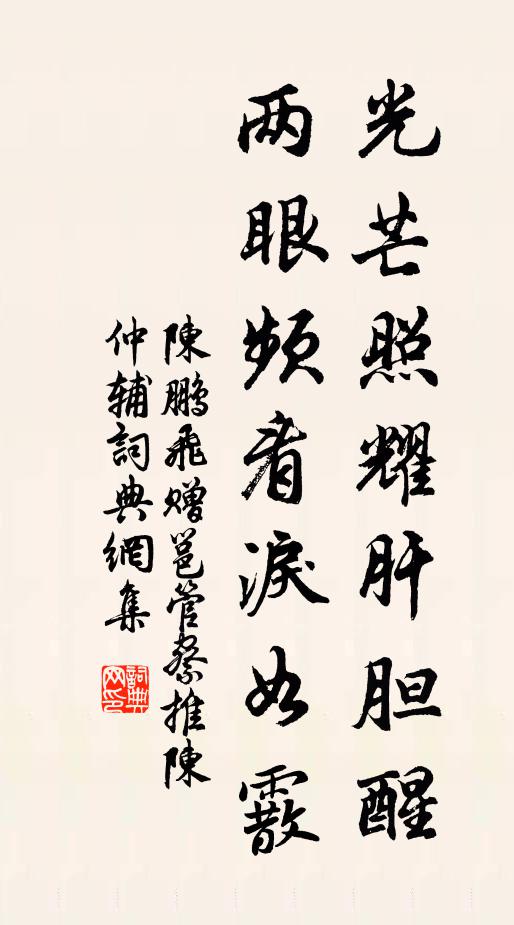 光芒照耀肝胆醒
两眼频看淚如霰
陳鵬飛赠邕管蔡推陳
仲辅詞典網集
詞典
网印